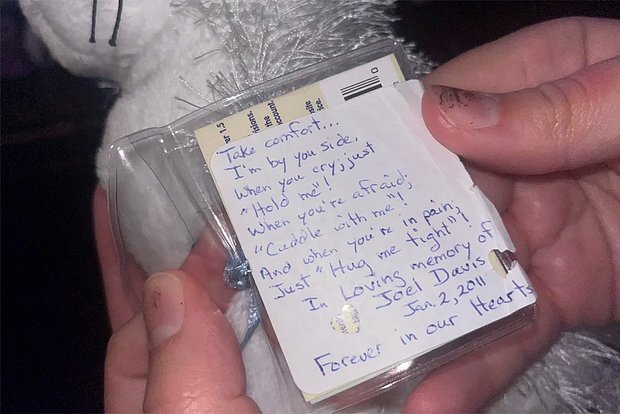 er 1.5
isions.
count.
the
site
ica.
0
Take comfort...
I'm by you side,
When you cry; just
"Hold me"!
When you're afraid;
"Cuddle with me"!
And when you're in pain;
Just "Hug me tight"!
In Loving memory of
Joel Davis
Jan. 2, 2011
Forever in our Hearts